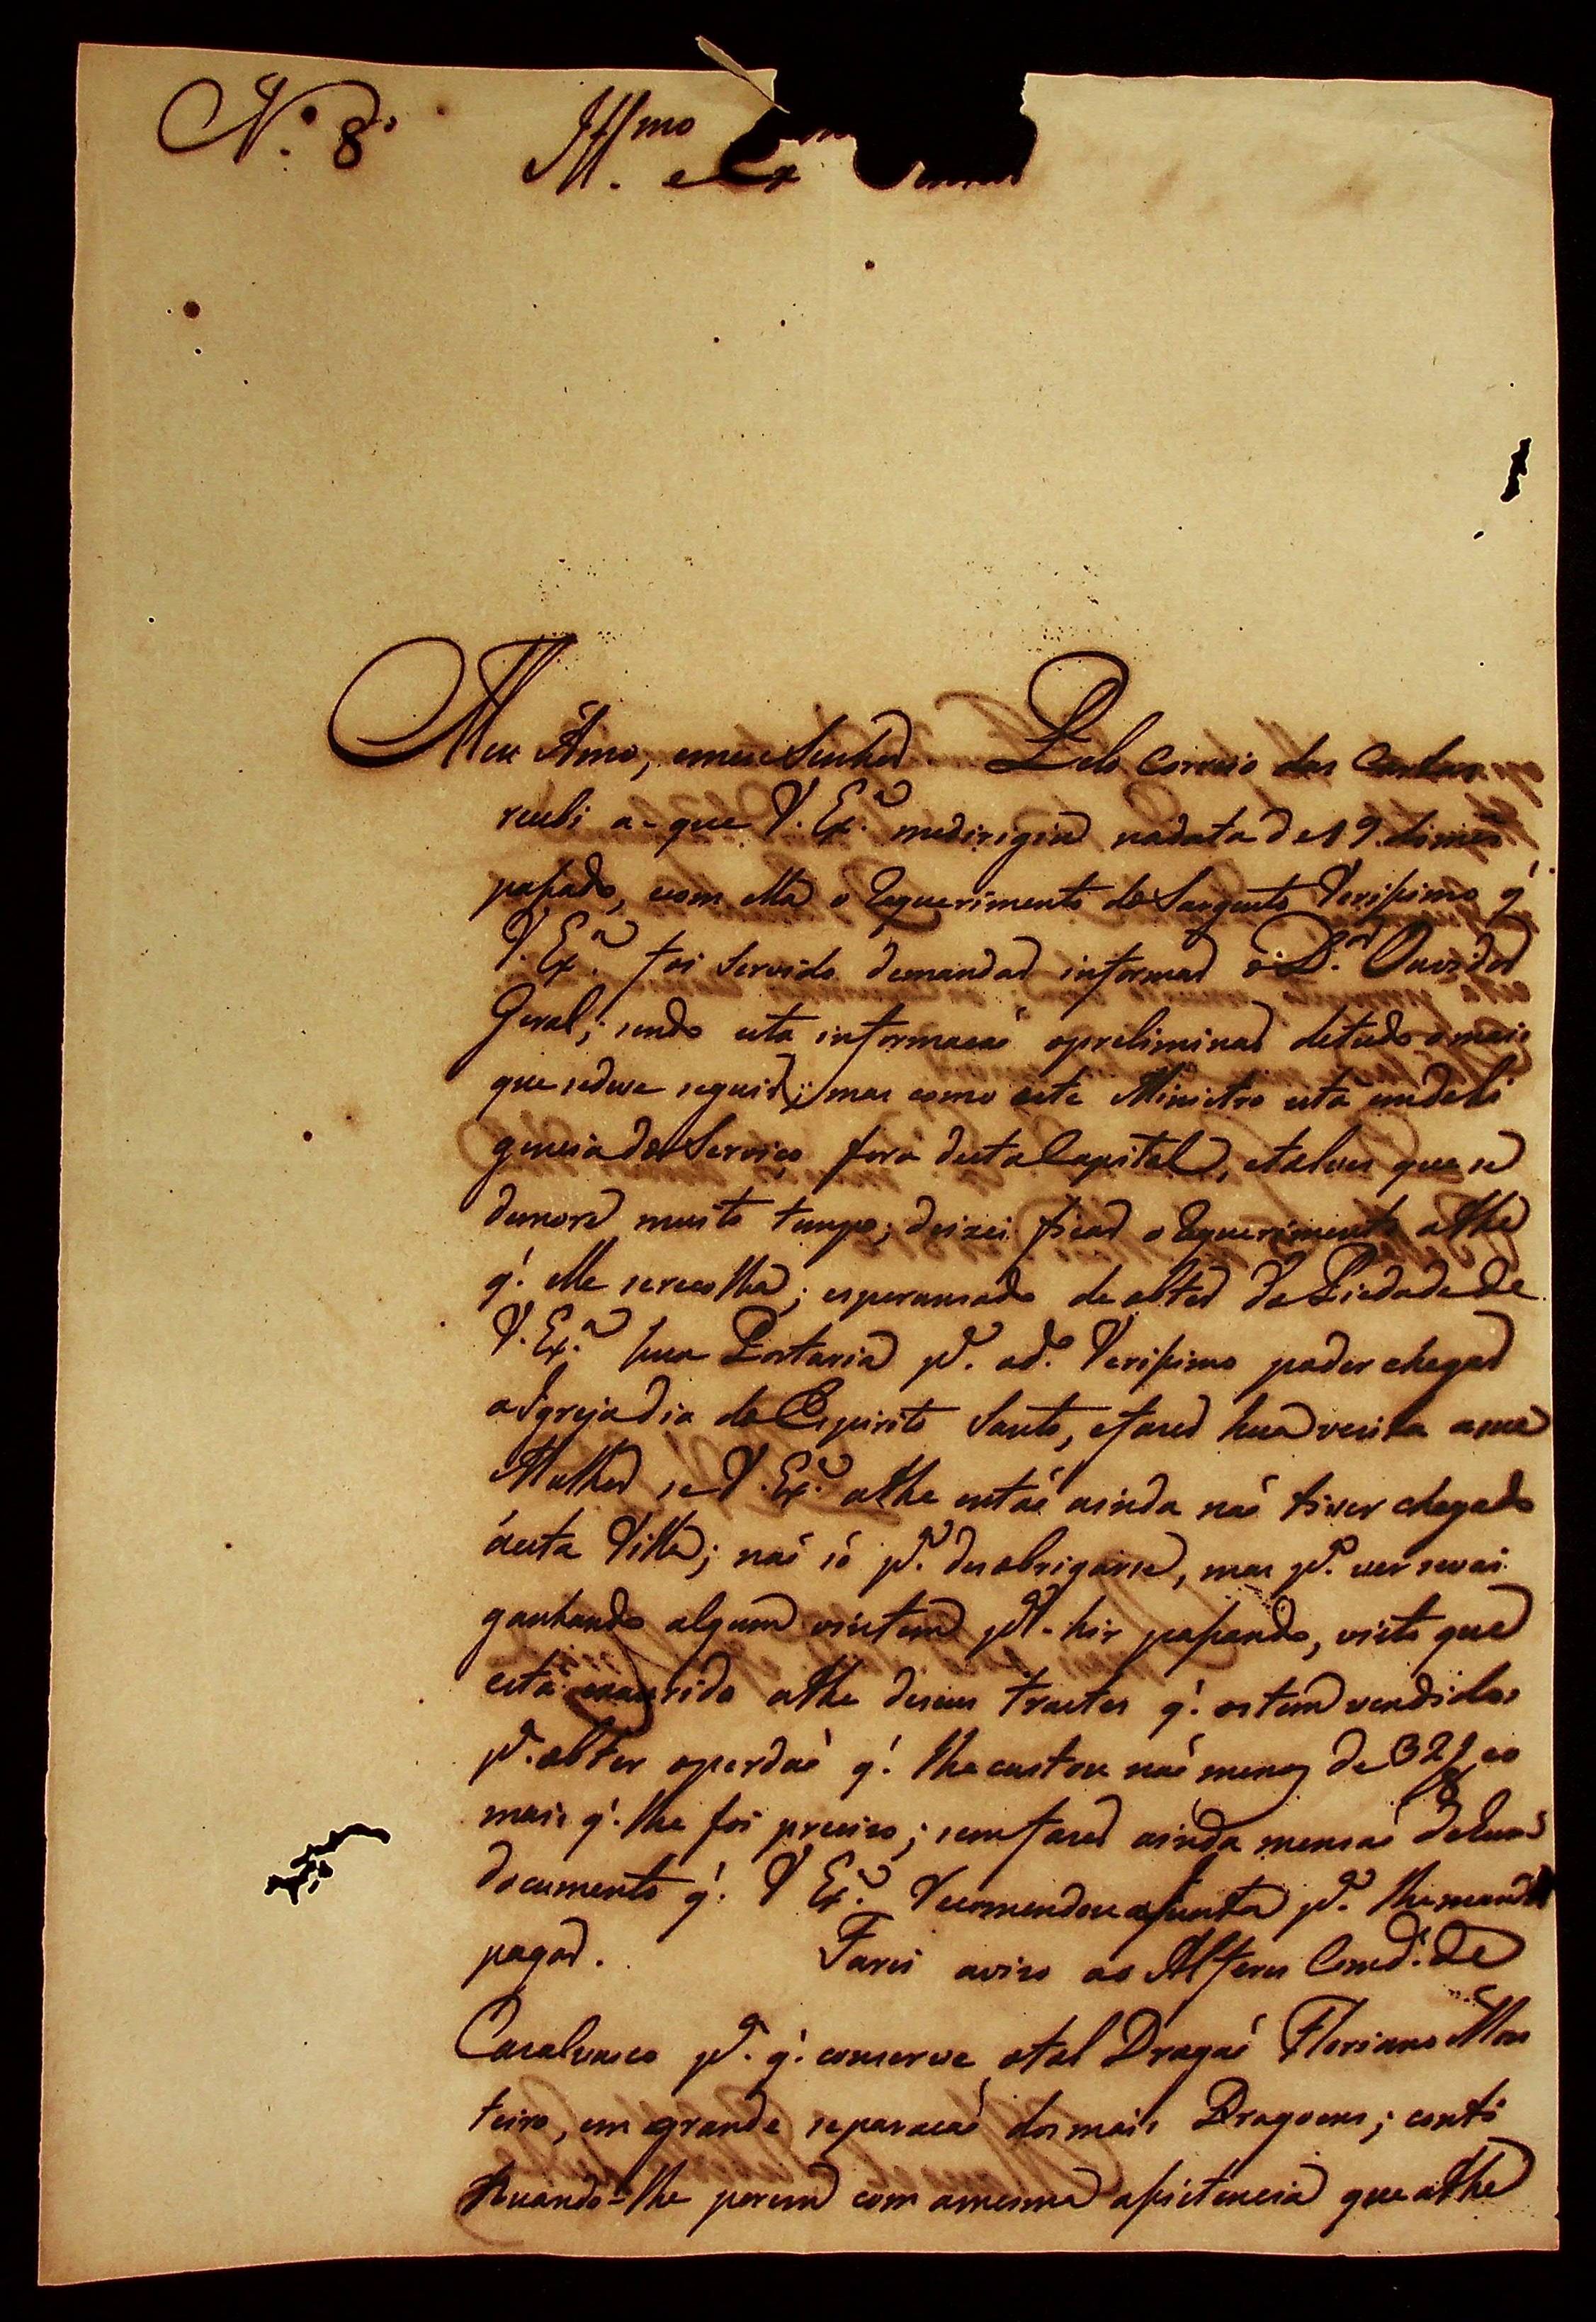 N.º 8º
Illmo e Ex
Meu Amo, emeu Senhor Pelo Correio das Cartas
recebi a-que V. Ex.ª medirigio nadata de 19. domes
passado, com ella o Requerimento do Sargento Verissimo q'
V. Ex.ª foi servido demandar informar o D.or Ouvidor
Geral; sendo esta informacaõ opreliminar detudo omais
que sedeve seguir; mas como este Ministro está emdeli
gencia do Serviço fora destaCapital, etalves que se
demore muito tempo; deixei ficar o Requerimento athe
q'. elle serecolha; esperansado de obter da Piedade de
V. Ex.ª hua Portaria p.ª od.º Verissimo poder chegar
aIgreja dia do Espirito Santo, efazer hua vezita asua
Mulher, se V. Ex.ª athe entaõ ainda naõ tiver chegado
áesta Villa; naõ só p.ª desobrigarse, mas p.ª ver sevai
ganhando algum vintem p.ª hir passando, visto que
está exaurido athe deseus trastes q'. ostem vendidos
p.ª obter operdaõ q'. lhecustou naõ menos de 32/8 eo
mais q'. lhe foi preciso; semfazer ainda mensaõ
documento q'. V Ex.ª recomendou aJunta p.ª lhemandar
pagar. Farei avizo ao Alferes Comd.e de
Casalvasco p.ª q'. conserve otal Dragaõ Floriano Mon
teiro, em grande separacaõ dosmais Dragoens; conti
nuando-lhe porem com amesma assistencia que athe